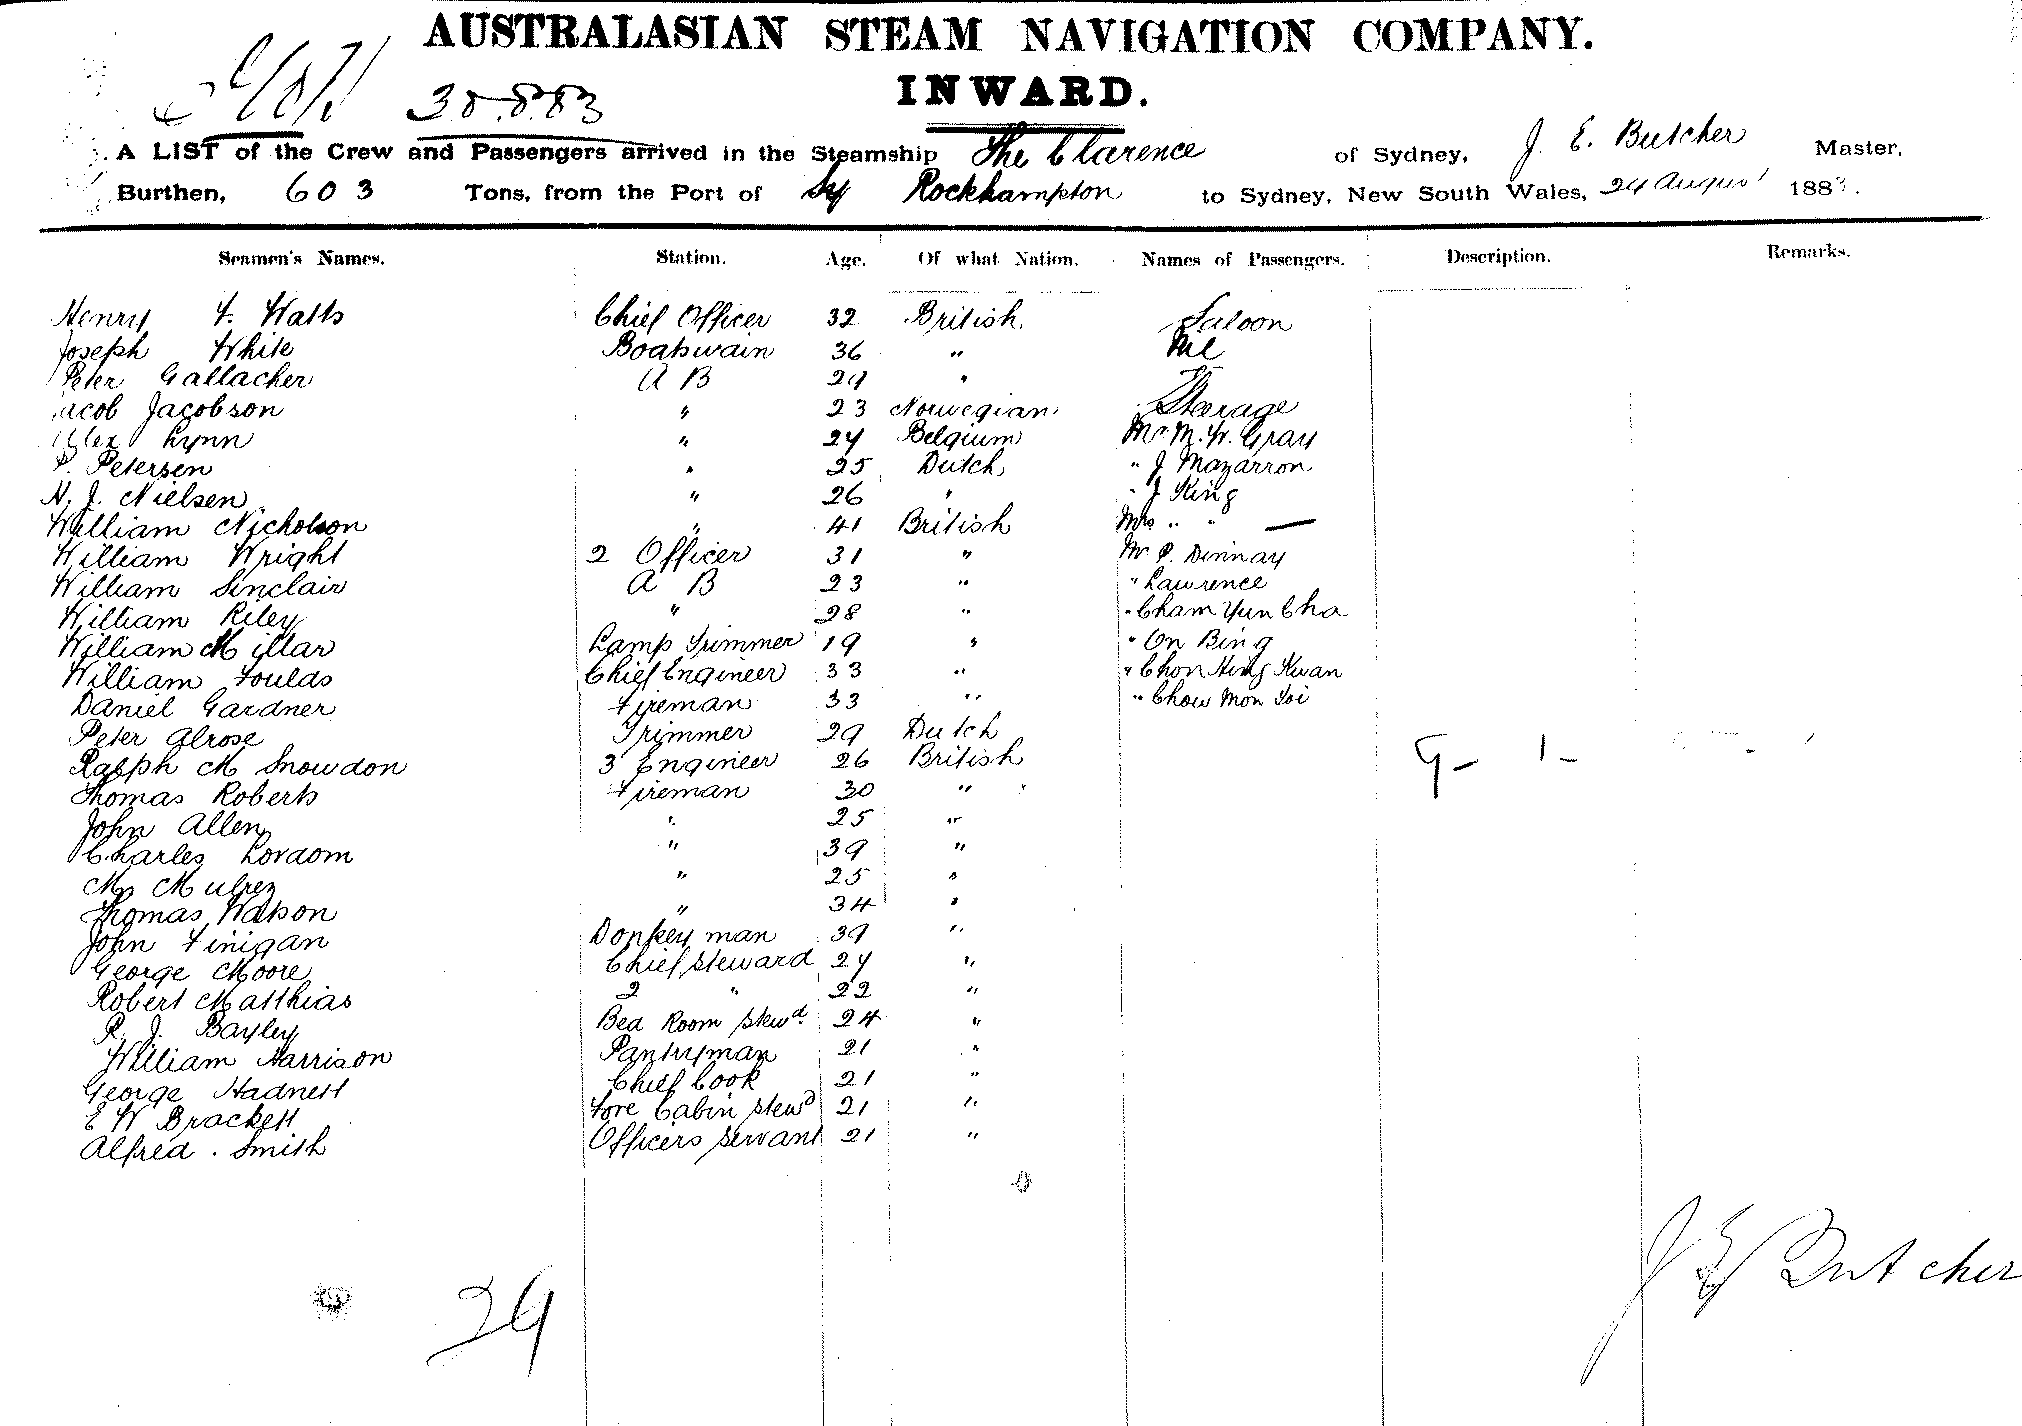 AUSTRALASIAN STEAM NAVIGATION COMPANY.
30.8.83
INWARD.
A LIST of the Crew and Passengers arrived in the Steamship The Clarence of Sydney, J. E. Butcher Master,
Burthen, 603 Tons, from the Port of Rockhampton to Sydney, New South Wales, 24 August 1883.
Seamen's Names. Station. Age. Of what Nation. Names of Passengers. Description. Remarks.
Henry F. Watts Chief Officer 32 British Saloon
Joseph White Boatswain 36 " Nil
Peter Gallacher A B 29 "
Jacob Jacobson " 23 Norwegian Steerage
Alex Lynn " 24 Belgium Mr M. W. Gray
P. Petersen " 25 Dutch " J Mazarron
N. J. Nielsen " 26 " " J King
William Nicholson " 41 British Mrs " " —
William Wright 2 Officer 31 " Mr P. Dinnay
William Sinclair A B 23 " " Lawrence
William Riley " 28 " " Cham Yun Cha
William Millar Lamp Trimmer 19 " " On Bing
William Foulds Chief Engineer 33 " " Chon Hing Kwan
Daniel Gardner Fireman 33 " " Chow Mon Toi
Peter Alrose Trimmer 29 Dutch
Ralph M Snowdon 3 Engineer 26 British 9- 1-
Thomas Roberts Fireman 30 "
John Allen " 25 "
Charles Lordom " 39 "
M 25 "
Thomas Watson " 34 "
John Finigan Donkeyman 39 "
George Moore Chief Steward 24 "
Robert Matthias 2 " 22 "
R. J. Bayley Bed Room Stewd. 24 "
William Harrison Pantryman 21 "
George Hadnett Chief Cook 21 "
E W Brackett Fore Cabin Stewd 21 "
Alfred . Smith Officers Servant 21 "
29
J E Butcher